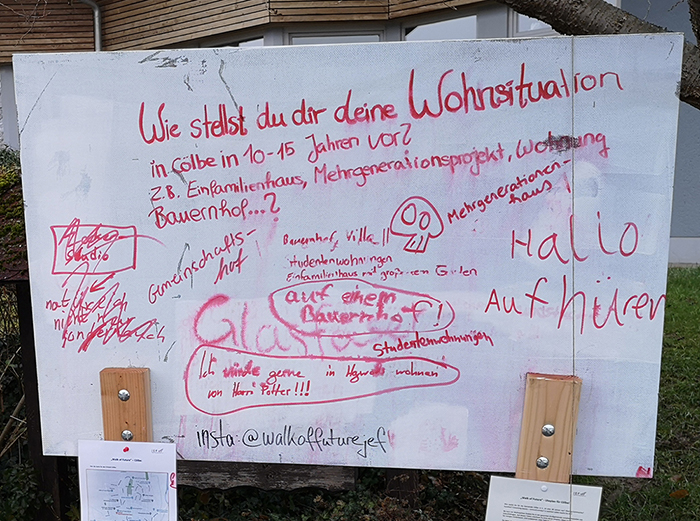 Wie stellst du dir deine Wohnsituation
in Cölbe in 10-15 Jahren vor?
z.B. Einfamilienhaus, Mehrgenerationsprojekt, Wohnung
Bauernhof...?
Mehrgenerationen-
haus!
Gemeinschafts-
hof
Bauernhof, Villa!!
Studentenwohnungen
Einfamilienhaus mit großem Garten
Hallo
Aufhüren
Studio
auf einem
Bauernhof!
Glasfaser
Studentenwohnungen
Ich würde gerne in Hgwats wohnen
von Harri Potter!!!
insta: @walkoffuturejef